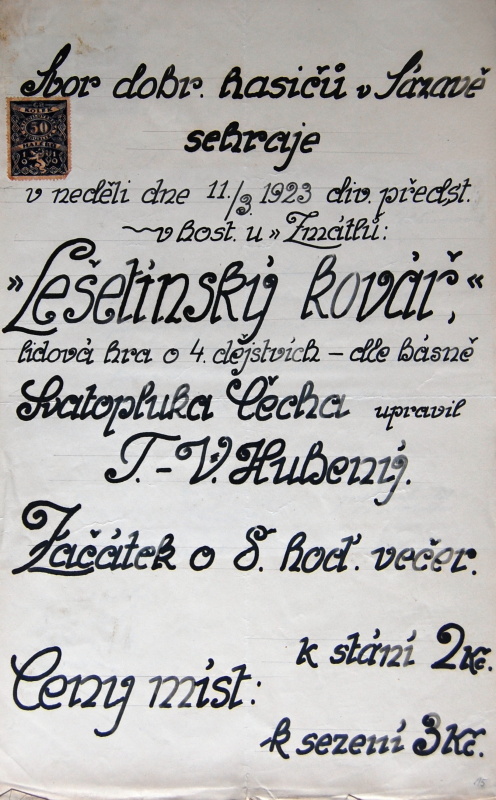 Sbor dobr. hasičů v Sázavě
KOLEK
50
HALÉŘŮ
sehraje
v neděli dne 11./3. 1923 div. předst.
~v host. u „Zmátlů:
„Lešetínský kovář,“
lidová hra o 4. dějstvích – dle básně
Svatopluka Čecha upravil
T.-V. Hubený.
Začátek o 8. hoď. večer.
k stání 2Kč.
Ceny míst:
-k sezení 3Kč.